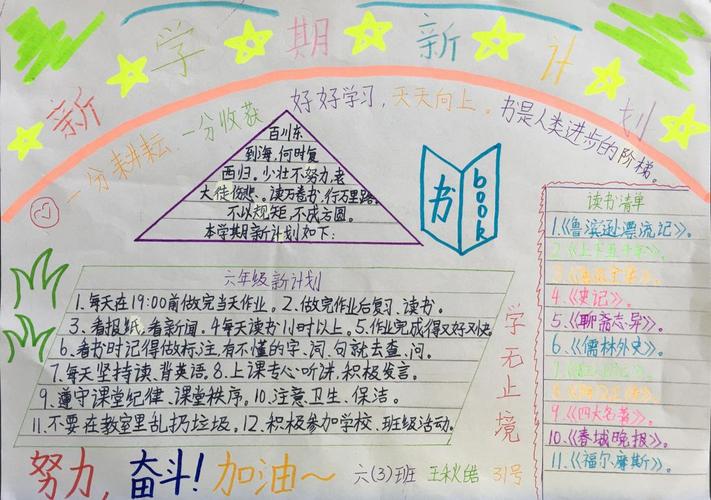 新学期新计划
一分耕耘,一分收获
好好学习,天天向上。
书是人类进步的阶梯。
百川东
到海,何时复
西归。少壮不努力,老
大徒伤悲。读万卷书,行万里路。
不以规矩,不成方圆。
本学期新计划如下:
书
book
读书清单
1.《鲁滨逊漂流记》。
2.《上下五千年》。
4.《史记》。
5.《聊斋志异》。
6.《儒林外史》。
9.《四大名著》。
10.《春城晚报》。
11.《福尔摩斯》。
六年级新计划
1.每天在19:00前做完当天作业。2.做完作业后复习、读书。
3.看报纸,看新闻。4每天读书1小时以上。5.作业完成得又好又快。
6.看书时记得做标注,有不懂的字、词、句就去查、问。
7.每天坚持读、背英语。8.上课专心听讲,积极发言。
9.遵守课堂纪律、课堂秩序。10.注意卫生、保洁。
11.不要在教室里乱扔垃圾。12.积极参加学校、班级活动。
学无止境
努力,奋斗!加油~
六(3)班 王秋皓 31号